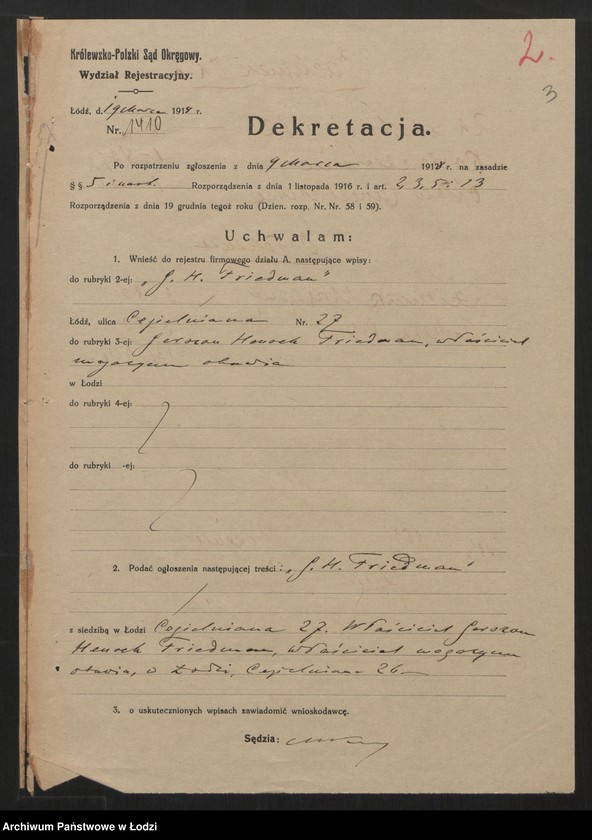 2.
3
Królewsko-Polski Sąd Okręgowy.
Wydział Rejestracyjny.
Łódź, d. 19 marca 1918 r.
Nr. 1410
Dekretacja.
Po rozpatrzeniu zgłoszenia z dnia 9 marca 1918 r. na zasadzie
§ § 5 i nast. Rozporządzenia z dnia 1 listopada 1916 r. i art. 2, 3, 5 i 13
Rozporządzenia z dnia 19 grudnia tegoż roku (Dzien. rozp. Nr. Nr. 58 i 59).
Uchwalam:
1. Wnieść do rejestru firmowego działu A. następujące wpisy:
do rubryki 2-ej: „G. H. Friedman"
Łódź, ulica Cegielniana Nr. 27
do rubryki 3-ej: Gerszon Henoch Friedman, właściciel
magazynu obuwia
w Łodzi
do rubryki 4-ej:
do rubryki -ej:
2. Podać ogłoszenia następującej treści: „G. H. Friedman"
z siedzibą w Łodzi Cegielniana 27. Właściciel Gerszon
Henoch Friedman, właściciel magazynu
obuwia, w Łodzi, Cegielniana 26
3. o uskutecznionych wpisach zawiadomić wnioskodawcę.
Sędzia:
Archiwum Państwowe w Łodzi